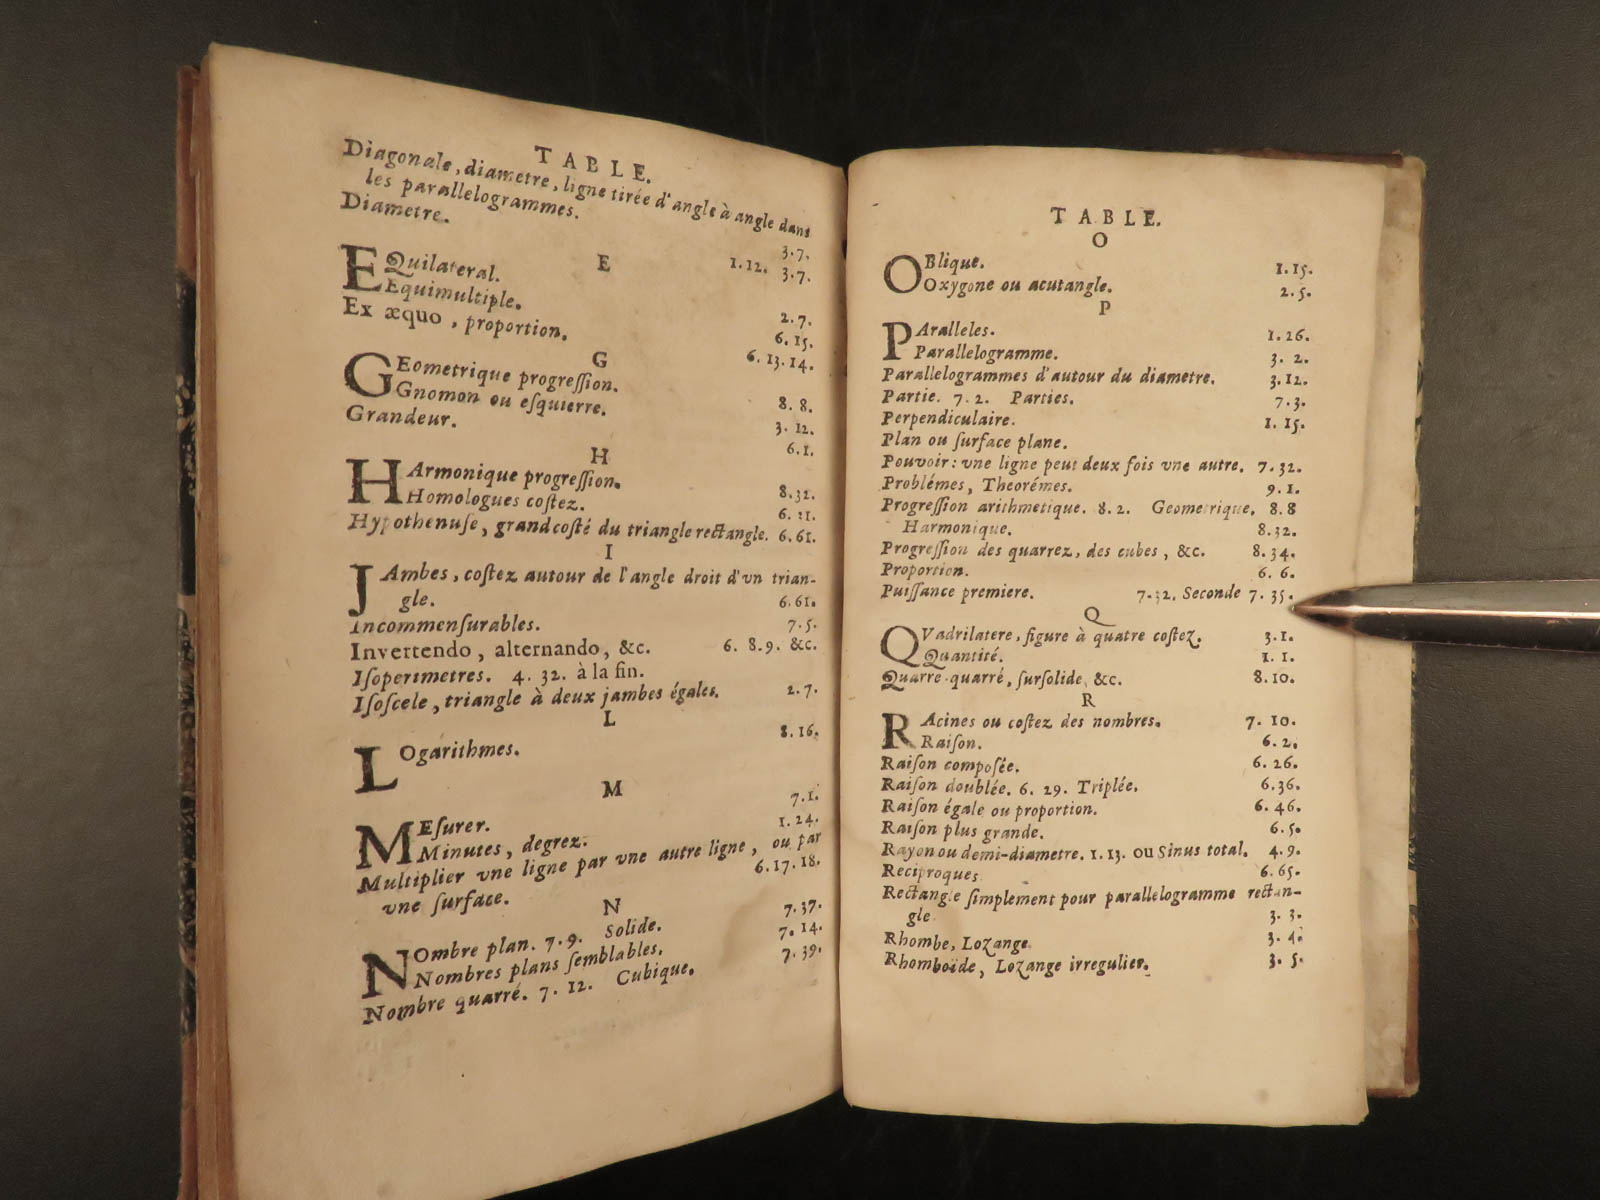 TABLE.
Diagonale, diametre, ligne tirée d'angle à angle dans
les parallelogrammes. 3.7.
Diametre. 1.12. 3.7.
E
EQuilateral. 2.7.
Equimultiple. 6.15.
Ex æquo, proportion. 6.13.14.
G
GEometrique progreſſion. 8.8.
Gnomon ou eſquierre. 3.12.
Grandeur. 6.1.
H
HArmonique progreſſion. 8.32.
Homologues coſtez. 6.21.
Hypothenuſe, grand coſté du triangle rectangle. 6.61.
I
JAmbes, coſtez autour de l'angle droit d'vn trian-
gle. 6.61.
Incommenſurables. 7.5.
Invertendo, alternando, &c. 6. 8.9. &c.
Iſoperimetres. 4. 32. à la fin.
Iſoſcele, triangle à deux jambes égales. 2.7.
L
LOgarithmes. 8.16.
M
MEſurer. 7.1.
Minutes, degrez. 1.24.
Multiplier vne ligne par vne autre ligne, ou par
vne ſurface. 6.17.18.
N
NOmbre plan. 7.9. Solide. 7.37.
Nombres plans ſemblables. 7.14.
Nombre quarré. 7. 12. Cubique. 7.39.
TABLE.
O
OBlique. 1.15.
Oxygone ou acutangle. 2.5.
P
PAralleles. 1.26.
Parallelogramme. 3.2.
Parallelogrammes d'autour du diametre. 3.12.
Partie. 7.2. Parties. 7.3.
Perpendiculaire. 1.15.
Plan ou ſurface plane.
Pouvoir: vne ligne peut deux fois vne autre. 7.32.
Problémes, Theorémes. 9.1.
Progreſſion arithmetique. 8.2. Geometrique. 8.8
Harmonique. 8.32.
Progreſſion des quarrez, des cubes, &c. 8.34.
Proportion. 6.6.
Puiſſance premiere. 7.32. Seconde 7.35.
Q
QVadrilatere, figure à quatre coſtez. 3.1.
Quantité. 1.1.
Quarre-quarré, ſurſolide, &c. 8.10.
R
RAcines ou coſtez des nombres. 7.10.
Raiſon. 6.2.
Raiſon composée. 6.26.
Raiſon doublée. 6.29. Triplée. 6.36.
Raiſon égale ou proportion. 6.46.
Raiſon plus grande. 6.5.
Rayon ou demi-diametre. 1.13. ou Sinus total. 4.9.
Reciproques 6.65.
Rectangle ſimplement pour parallelogramme rectan-
gle. 3.3.
Rhombe, Lozange. 3.4.
Rhomboïde, Lozange irregulier. 3.5.